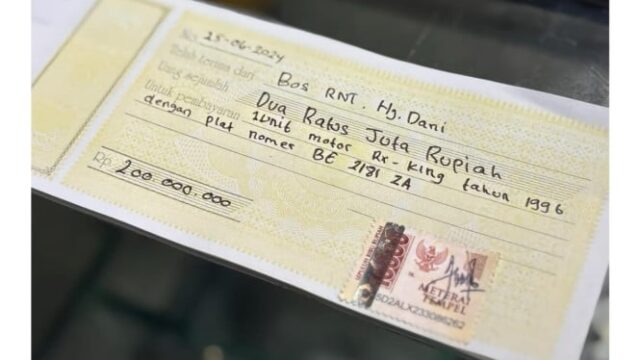 No. 25-06-2024
Telah terima dari Bos RNT. Hj. Dani
Uang sejumlah Dua Ratus Juta Rupiah
Untuk pembayaran 1Unit motor Rx-king tahun 1996
dengan plat nomer BE 2181 ZA
Rp. 200.000.000
10000
METERAI
TEMPEL